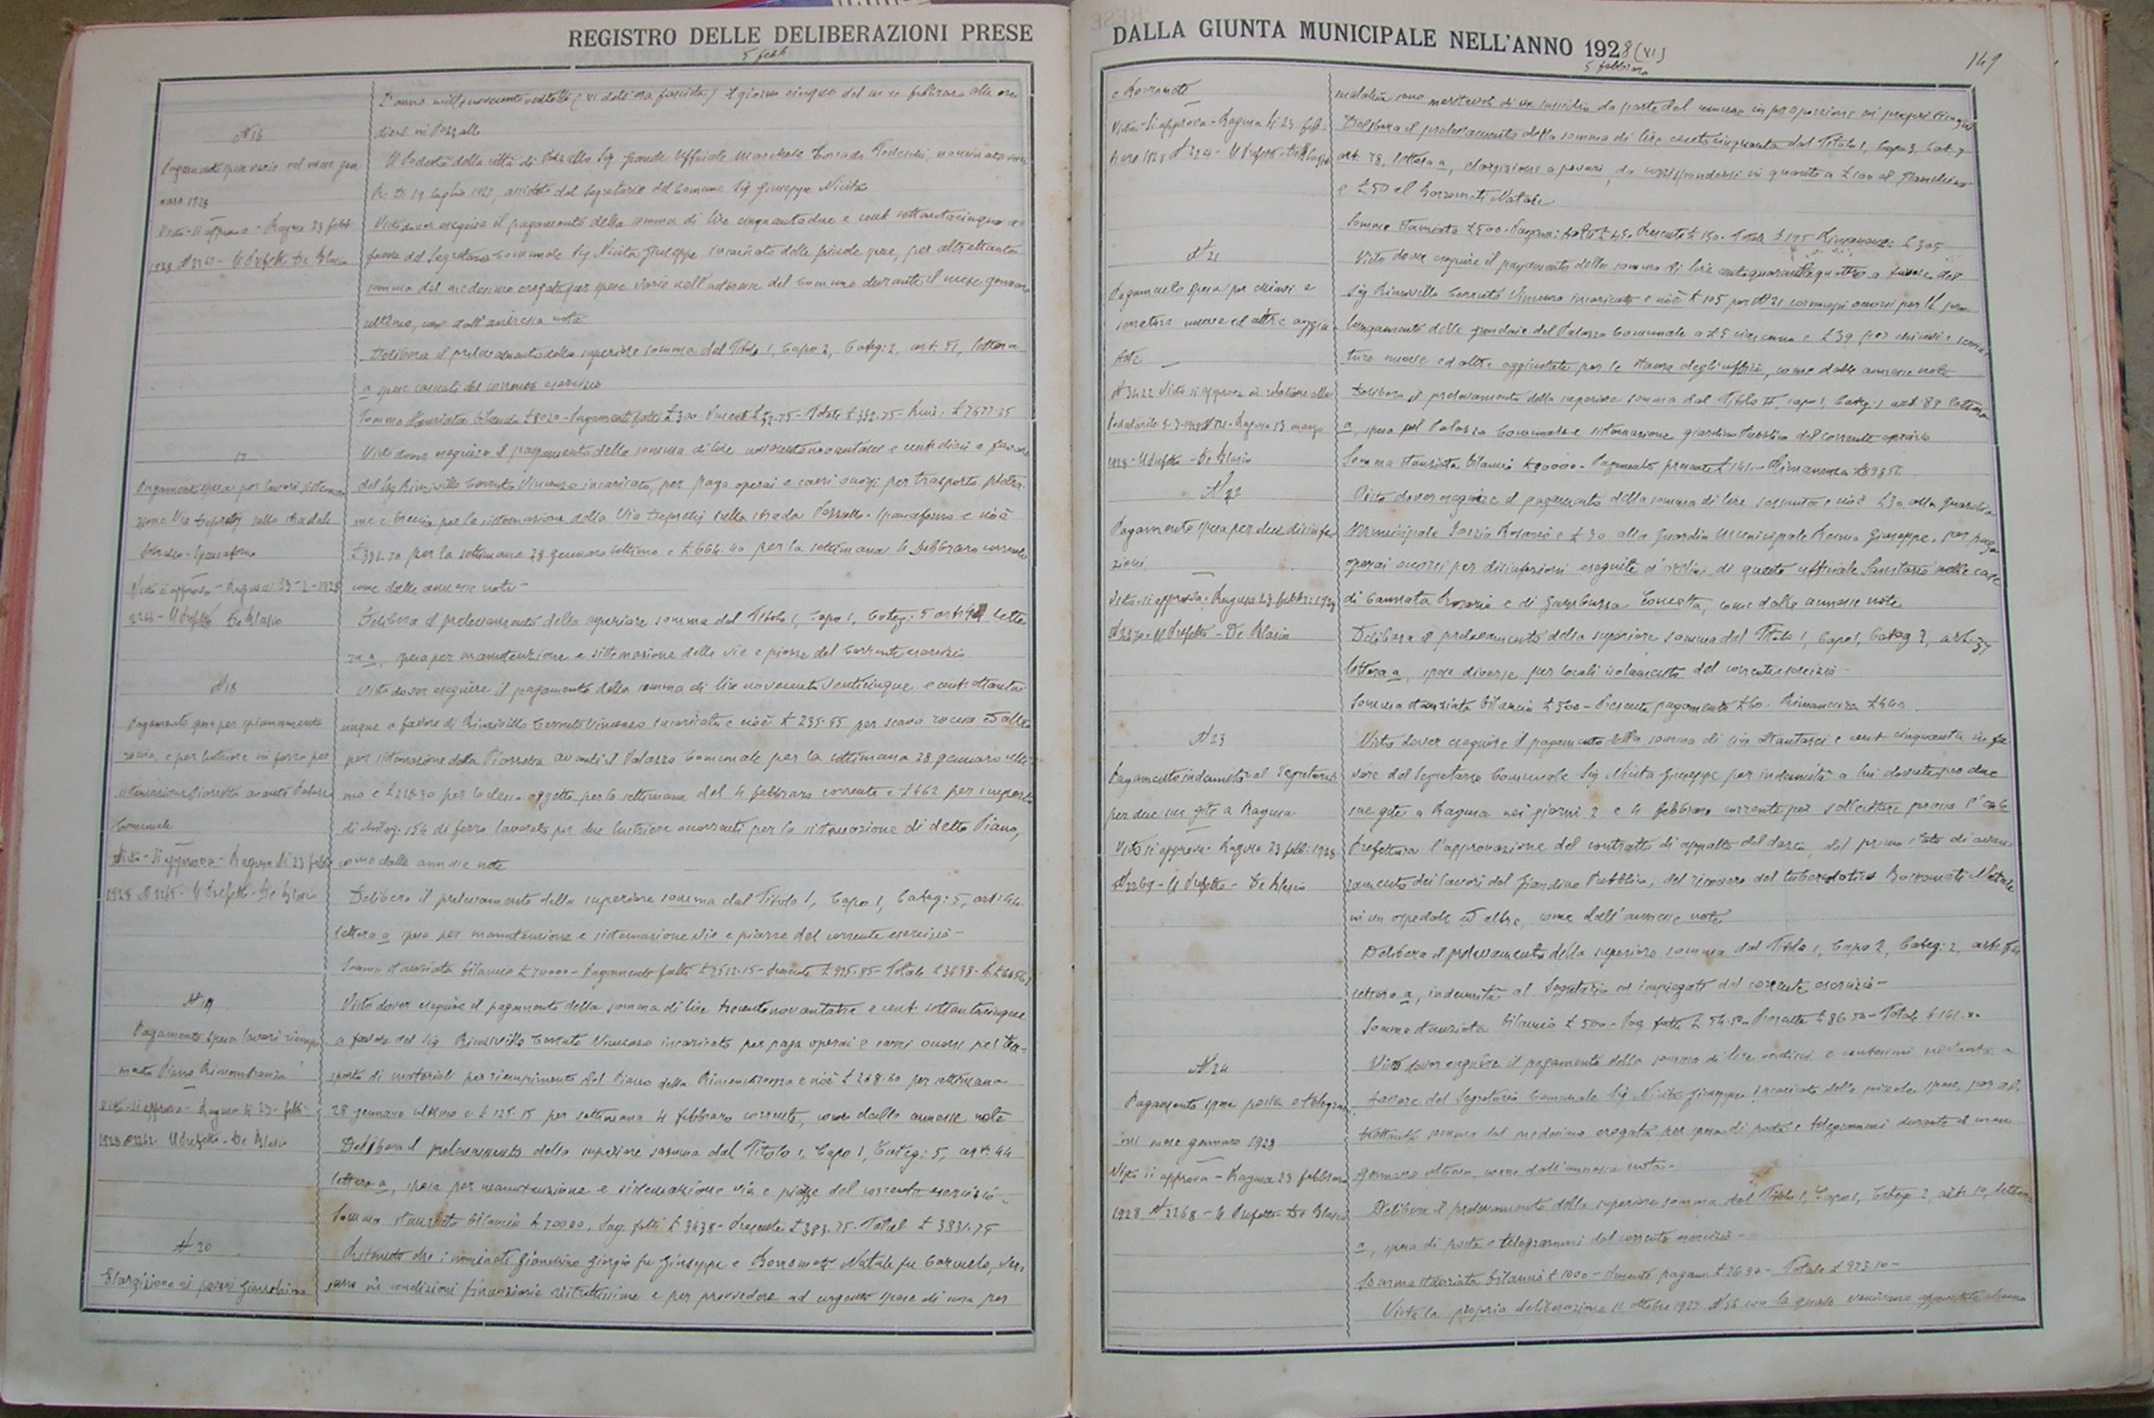 REGISTRO DELLE DELIBERAZIONI PRESE
5 febb.
L'anno millenovecento ventotto (VI dell'era fascista) il giorno cinque del mese febbraro alle ore
dieci in Pozzallo
N 16
Pagamento spese varie nel mese gen
naro 1928
Visto - Si approva - Ragusa 23 febb
1928 N 2267 - Il Prefetto De Blasio
Il Podestà della città di Pozzallo Sig. Grande Ufficiale Marchese Corrado Tedeschi, nominato con
R. D. 19 luglio 1927, assistito dal Segretario del Comune Sig Giuseppe Nicita
Visto dover eseguire il pagamento della somma di lire cinquantadue e cent settantacinque a
favore del Segretario Comunale Sig Nicita Giuseppe incaricato delle piccole spese, per altrettanta
somma dal medesimo erogata per spese varie nell'interesse del Comune durante il mese gennaro
ultimo, come dall'annessa nota
Delibera il prelevamento della superiore somma dal Titolo 1, Capo 2, Categ: 2, art: 51, lettera
a spese casuali del corrente esercizio
Somma stanziata bilancio £ 8020 - Pagamenti fatti £ 300 - Presente £ 52.75 - Totale £ 352.75 - Rim: £ 7677.25
17
Pagamento spesa per lavori sistema
zione Via Depretis sullo stradale
Pozzallo - Spaccaforno
Visto si approva - Ragusa 23-2-1928
2266 - Il Prefetto De Blasio
Visto dover eseguire il pagamento della somma di lire novecentonovantasei e cent: dieci a favore
del Sig Rinzivillo Cerruto Vincenzo incaricato, per paga operai e carri occorsi per trasporto pietra
me e breccia per la sistemazione della Via Depretis sulla strada Pozzallo - Spaccaforno e cioè
£ 331.70 per la settimana 28 gennaro ultimo e £ 664.40 per la settimana 4 febbraro corrente
come dalle annesse note -
Delibera il prelevamento della superiore somma dal Titolo 1, Capo 1, Categ: 5 art: 44 lette
ra a, spesa per manutenzione e sistemazione delle vie e piazze del corrente esercizio
N 18
Pagamento spesa per spianamento
roccia, e per lustriere in ferro per
sistemazione Piazzetta avanti Palazzo
Comunale
Visto - Si approva - Ragusa li 23 febb
1928 N 2265 - Il Prefetto - De Blasio
Visto dover eseguire il pagamento della somma di lire novecento venticinque e cent: ottanta
cinque a favore di Rinzivillo Cerruto Vincenzo incaricato e cioè £ 235.55 per scavo roccia ed altro
per sistemazione della Piazzetta avanti il Palazzo Comunale per la settimana 28 gennaro ulti
mo e £ 228.30 per lo stesso oggetto per la settimana del 4 febbraro corrente e £ 462 per importo
di chilog: 154 di ferro lavorato per due lustriere occorrenti per la sistemazione di detto Piano,
come dalle annesse note
Delibera il prelevamento della superiore somma dal Titolo 1, Capo 1, Categ: 5, art: 44
lettera a spesa per manutenzione e sistemazione vie e piazze del corrente esercizio -
Somma stanziata bilancio £ 70000 - Pagamenti fatti £ 2512.15 - Presente £ 925.85 - Totale £ 3438 -
N 19
Pagamento spesa lavori riempi
mento Piano Rimembranza
Visto - Si approva - Ragusa li 23 - febb:
1928 N 2262 Il Prefetto - De Blasio
Visto dover eseguire il pagamento della somma di lire trecentonovantatre e cent settantacinque
a favore del Sig Rinzivillo Cerruto Vincenzo incaricato per paga operai e carri occorsi pel tra-
sporto di materiali per riempimento del Piano della Rimembranza e cioè £ 268.60 per settimana
28 gennaro ultimo e £ 125.15 per settimana 4 febbraro corrente, come dalle annesse note
Delibera il prelevamento della superiore somma dal Titolo 1, Capo 1, Categ: 5, art: 44
lettera a, spesa per manutenzione e sistemazione vie e piazze del corrente esercizio -
Somma stanziata bilancio £ 70000. Pag. fatti £ 3438 - Presente £ 393.75 - Totale £ 3831.75
N 20
Elargizione ai poveri Gianchino
Ritenuto che i nominati Gianchino Giorgio fu Giuseppe e Borrometi Natale fu Carmelo, ver
sano in condizioni finanziarie ristrettissime e per provvedere ad urgente spese di cura per
DALLA GIUNTA MUNICIPALE NELL'ANNO 1928 (VI)
5 febbraro
149
e Borrometi
Visto - Si approva - Ragusa li 23 feb
braro 1928 N 2264 - Il Prefetto De Blasio
malattia sono meritevoli di un sussidio da parte del comune in proporzione ai propri bisogni
Delibera il prelevamento della somma di lire centocinquanta dal Titolo 1, Capo 3, Cat. 7
art: 78, lettera a, elargizioni a poveri, da corrispondersi in quanto a £ 100 al Gianchino
e £ 50 al Borrometi Natale
Somma stanziata £ 500 - Pagam: fatti £ 45 - Presente £ 150 - Totale £ 195 Rimanenza £ 305
N 21
Pagamento spesa per chiavi e
serrature nuove ed altre aggiu
state
N 3422 Visto si approva in relazione alla
Podestarile 5-3-1928 - Ragusa 13 marzo
1928 - Il Prefetto - De Blasio
Visto dover eseguire il pagamento della somma di lire centoquarantaquattro a favore del
Sig Rinzivillo Cerruto Vincenzo incaricato e cioè £ 105 per N 21 occorsi per il pro
lungamento delle grondaie del Palazzo Comunale a £ 5 ciascuno e £ 39 per chiavi e serra
ture nuove ed altre aggiustate per le stanze degli uffici, come dalle annesse note
Delibera il prelevamento della superiore somma dal Titolo II, capo 1, Categ: 1 art 89 lettera
a, spesa pel Palazzo Comunale e sistemazione giardino Pubblico del corrente esercizio
Somma stanziata bilancio £ 90000 - Pagamento presente £ 144 - Rimanenza £ 89856
N 22
Pagamento spesa per due disinfe
zioni
Visto - si approva - Ragusa 23 febb: 1928
N 2270 Il Prefetto - De Blasio
Visto dover eseguire il pagamento della somma di lire sessanta, cioè £ 30 alla Guardia
Municipale Rosario e £ 30 alla Guardia Municipale Giuseppe, per paga
operai occorsi per disinfezioni eseguite d'ordine di questo ufficiale Sanitario nelle case
di Cannata Rosaria e di Gambuzza Concetta, come dalle annesse note
Delibera il prelevamento della superiore somma dal Titolo 1, Capo 1, Categ 3, art. 37
lettera a, spese diverse per locali isolamento del corrente esercizio -
Somma stanziata bilancio £ 500 - Presente pagamento £ 60 - Rimanenza £ 440
N 23
Pagamento indennità al Segretario
per due sue gite a Ragusa
Visto si approva - Ragusa 23 febb: 1928
N 2269 - Il Prefetto - De Blasio
Visto dover eseguire il pagamento della somma di lire ottantasei e cent cinquanta in fa
vore del Segretario Comunale Sig Nicita Giuseppe per indennità a lui dovute per due
sue gite a Ragusa nei giorni 2 e 4 febbraro corrente per sollecitare presso l'On.le
Prefettura l'approvazione del contratto di appalto del dazio, del primo stato di avan
zamento dei lavori del Giardino Pubblico, del ricovero del tubercolotico Borrometi Natale
in un ospedale ed altro, come dall'annesse note
Delibera il prelevamento della superiore somma dal Titolo 1, Capo 2, Categ: 2, art:
lettera a, indennità al Segretario ed impiegati del corrente esercizio -
Somma stanziata bilancio £ 500 - Pag fatti £ 54.50 - Presente £ 86.50 - Totale £ 141.00
N 24
Pagamento spese posta e telegram
mi mese gennaro 1928
Visto si approva - Ragusa 23 febbraro
1928 N 2268 - Il Prefetto De Blasio
Visto dover eseguire il pagamento della somma di lire e centesimi novanta a
favore del Segretario Comunale Sig Nicita Giuseppe incaricato delle piccole spese, per al
trettanta somma dal medesimo erogata per spesa di posta e telegrammi durante il mese
gennaro ultimo, come dall'annessa nota -
Delibera il prelevamento della superiore somma dal Titolo 1, Capo 1, Categ 2, art: 10, lettera
a, spesa di posta e telegrammi del corrente esercizio -
Somma stanziata bilancio £ 1000 - Presente pagam £ 26.90 - Totale £ 973.10 -
Vista la propria deliberazione 11 ottobre 1927 N 56 con la quale venivano apportate alcune